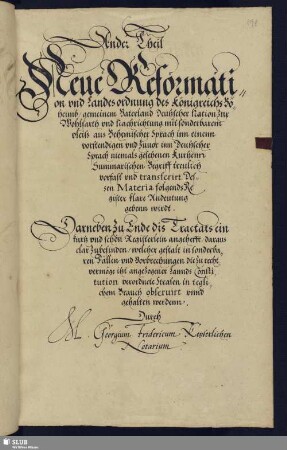 Ander Theil
Neue Reformati-
on vnd Landesordnung des Königreichs Bö-
heimb gemeinem Vaterland Deutscher Nation zur
Wohlfarth vnd Nachrichtung mit sonderbarem
vleis aus Behemischer Sprach inn einem
vorstendigen vnd Zuuor inn Deutscher
Sprach niemals gesehenen Kurtzen
Summarischen Begriff treulich
verfast vnd transferirt Des-
sen Materia folgends Re-
gister klare Andeutung
geben wirdt.
Darneben Zu Ende dis Tractats ein
kurtz vnd schön Registerlein angehefft daraus
clar Zubefinden welcher gestalt in sonderba-
ren Fällen vnd Vorbrechungen die zu recht
vermöge itzt angezogener Lannds Consti-
tution verordnete Strafen in tegli-
chem Brauch obseruirt vnnd
gehalten werdenn.
Durch
M. Georgium Fridericum
Notarium
SLUB